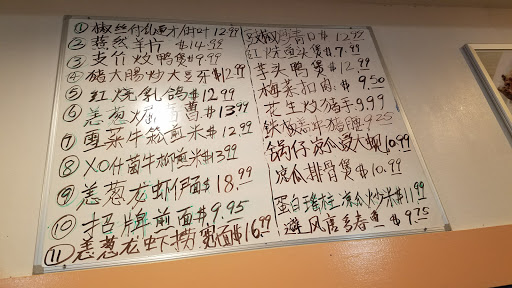 ① 椒丝付乳 12.99
② 羊片 $14.99
③ 支竹炆鸭煲 $9.99
④ 猪大肠炒大豆芽 $12.99
⑤ 红烧乳鸽 $12.99
⑥ 姜葱 $13.99
⑦ 雪菜牛松煎米 $12.99
⑧ XO什菌牛柳煎米 $13.99
⑨ 姜葱龙虾伊面 $18.99
⑩ 招牌煎面 $9.95
⑪ 姜葱龙虾捞宽面 $16.99
豉椒炒青口 $12.99
红烧鱼头煲 $9.99
芋头鸭煲 $12.99
梅菜扣肉 $9.50
花生炆猪手 9.99
铁板 猪腰 9.25
锅仔凉瓜 10.99
凉瓜排骨煲 $10.99
蛋白瑤柱凉瓜炒米 $11.99
避风唐 $9.75